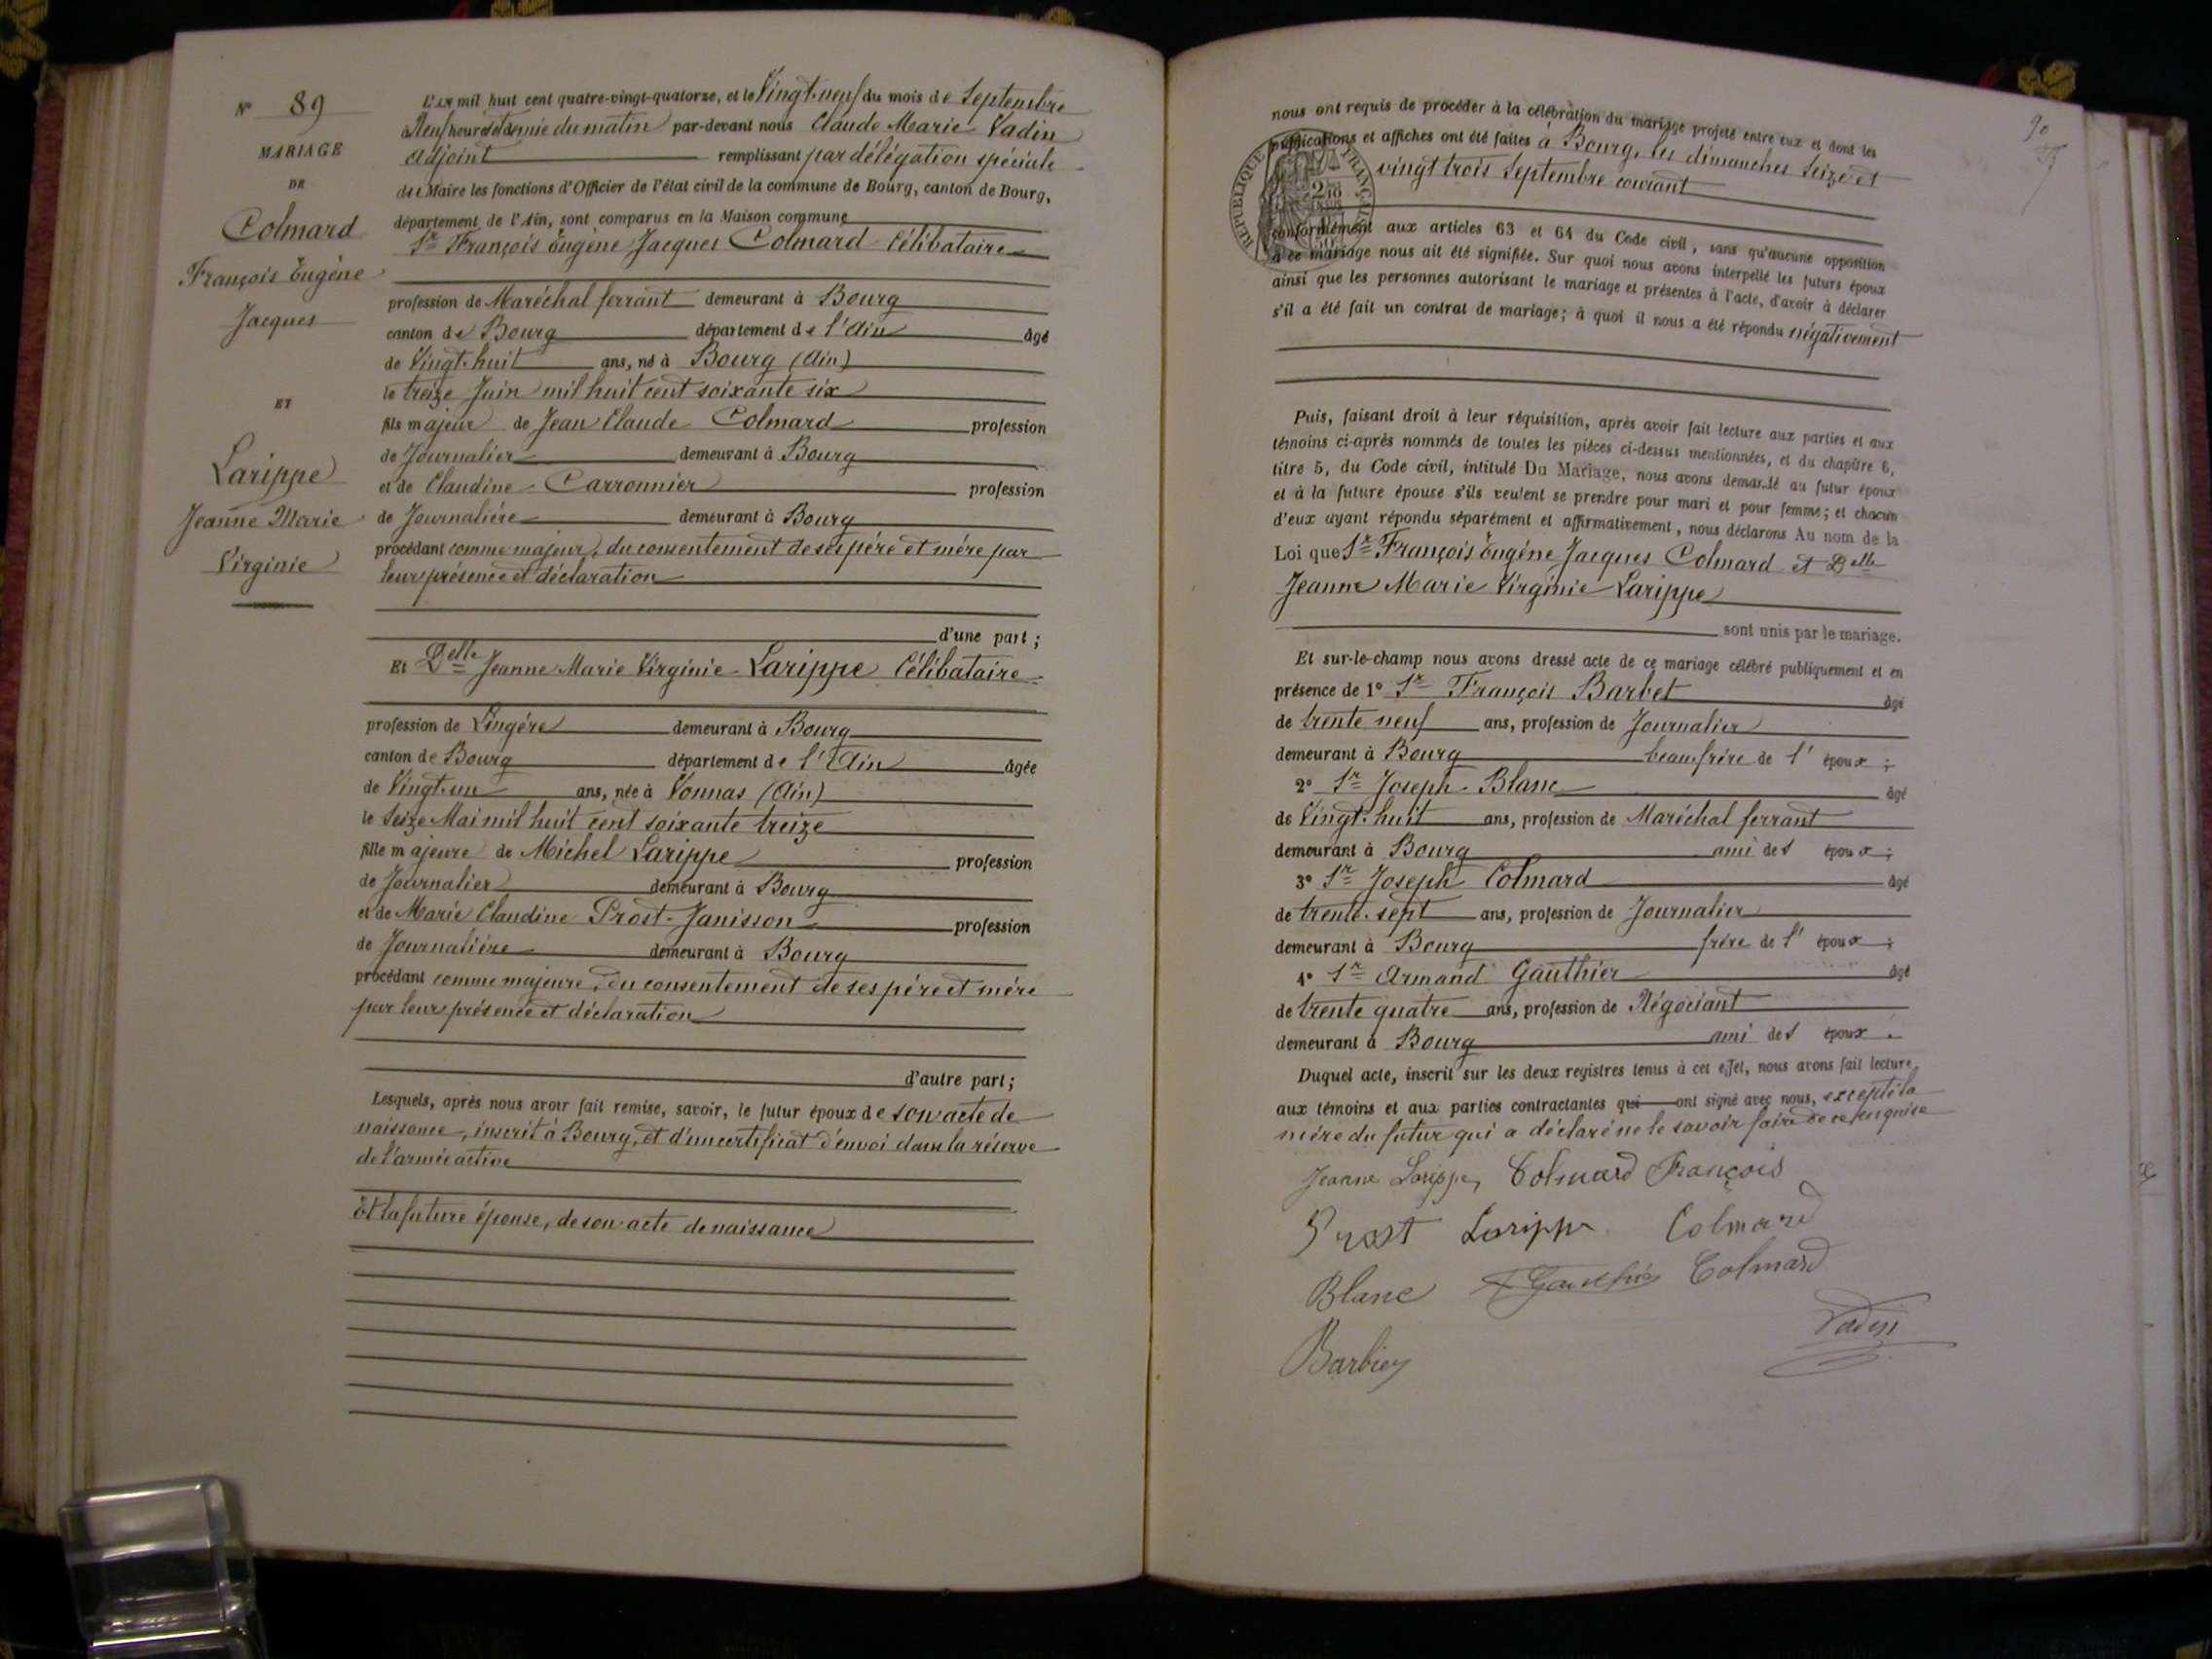 N° 89
MARIAGE
DE
Colmard
François Eugène
Jacques
ET
Larippe
Jeanne Marie
Virginie
L'an mil huit cent quatre-vingt-quatorze, et le Vingt-neuf du mois de Septembre
à Neuf heures et demie du matin par-devant nous Claude Marie Vadin
adjoint remplissant par délégation spéciale
du Maire les fonctions d'Officier de l'état civil de la commune de Bourg, canton de Bourg,
département de l'Ain, sont comparus en la Maison commune
Sr François Eugène Jacques Colmard Célibataire
profession de Maréchal ferrant demeurant à Bourg
canton de Bourg département de l'Ain âgé
de Vingt-huit ans, né à Bourg (Ain)
le treize Juin mil huit cent soixante six
fils majeur de Jean Claude Colmard profession
de Journalier demeurant à Bourg
et de Claudine Carronnier profession
de Journalière demeurant à Bourg
procédant comme majeur, du consentement de ses père et mère par
leur présence et déclaration
d'une part ;
Et Delle Jeanne Marie Virginie Larippe Célibataire
profession de Lingère demeurant à Bourg
canton de Bourg département de l'Ain âgée
de Vingt-un ans, née à Vonnas (Ain)
le Seize Mai mil huit cent soixante treize
fille majeure de Michel Larippe profession
de Journalier demeurant à Bourg
et de Marie Claudine Prost-Janisson profession
de Journalière demeurant à Bourg
procédant comme majeure, du consentement de ses père et mère
par leur présence et déclaration
d'autre part ;
Lesquels, après nous avoir fait remise, savoir, le futur époux de son acte de
naissance, inscrit à Bourg, et d'un certificat d'envoi dans la réserve
de l'armée active
Et la future épouse, de son acte de naissance
90
nous ont requis de procéder à la célébration du mariage projeté entre eux et dont les
publications et affiches ont été faites à Bourg, les dimanches Seize et
vingt trois Septembre courant
RÉPUBLIQUE FRANÇAISE
conformément aux articles 63 et 64 du Code civil, sans qu'aucune opposition
à ce mariage nous ait été signifiée. Sur quoi nous avons interpellé les futurs époux
ainsi que les personnes autorisant le mariage et présentes à l'acte, d'avoir à déclarer
s'il a été fait un contrat de mariage ; à quoi il nous a été répondu négativement
Puis, faisant droit à leur réquisition, après avoir fait lecture aux parties et aux
témoins ci-après nommés de toutes les pièces ci-dessus mentionnées, et du chapitre 6,
titre 5, du Code civil, intitulé Du Mariage, nous avons demandé au futur époux
et à la future épouse s'ils veulent se prendre pour mari et pour femme ; et chacun
d'eux ayant répondu séparément et affirmativement, nous déclarons Au nom de la
Loi que Sr François Eugène Jacques Colmard et Delle
Jeanne Marie Virginie Larippe
sont unis par le mariage.
Et sur-le-champ nous avons dressé acte de ce mariage célébré publiquement et en
présence de 1° Sr François Barbet âgé
de trente neuf ans, profession de Journalier
demeurant à Bourg beau-frère de l'époux ;
2° Sr Joseph Blanc âgé
de Vingt-huit ans, profession de Maréchal ferrant
demeurant à Bourg ami des époux ;
3° Sr Joseph Colmard âgé
de trente-sept ans, profession de Journalier
demeurant à Bourg frère de l'époux ;
4° Sr Armand Gauthier âgé
de trente quatre ans, profession de Négociant
demeurant à Bourg ami des époux.
Duquel acte, inscrit sur les deux registres tenus à cet effet, nous avons fait lecture
aux témoins et aux parties contractantes qui ont signé avec nous, excepté la
mère du futur qui a déclaré ne le savoir faire de ce enquise
Jeanne Larippe Colmard François
Prost Larippe Colmard
Blanc Gauthier Colmard
Vadin